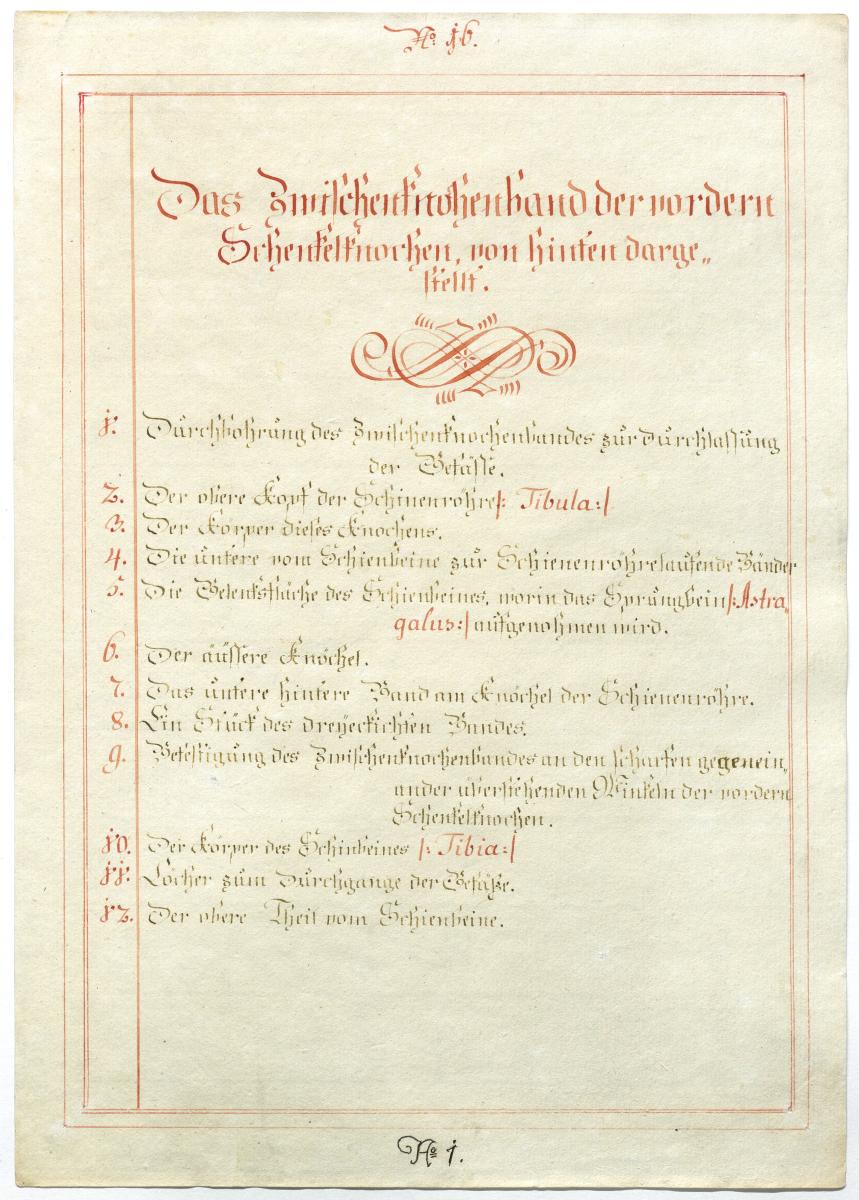 No 16.
Das Zwischenknohenband der vordern
Schenkelknochen, von hinten darge„
stellt.
1. Durchbohrung des Zwischenknochenbandes zur Durchlassung
der Gefässe.
2. Der obere Kopf der Schinenröhre/: Tibula:/
3. Der Körper dieses Knochens.
4. Die untere vom Schienbeine zur Schienenröhrelaufende Bänder
5. Die Gelenksfläche des Schienbeines, worin das Sprungbein/:Astra„
galus:/ aufgenohmen wird.
6. Der äussere Knöchel.
7. Das untere hintere Band am Knöchel der Schienenröhre.
8. Ein Stück des dreyeckichten Bandes.
9. Befestigung des Zwischenknochenbandes an den scharfen gegenein„
ander überstehenden Winkeln der vordern
Schenkelknochen.
10. Der Körper des Schinbeines /: Tibia:/
11. Löcher zum Durchgange der Gefäße.
12. Der obere Theil vom Schienbeine.
No 1.